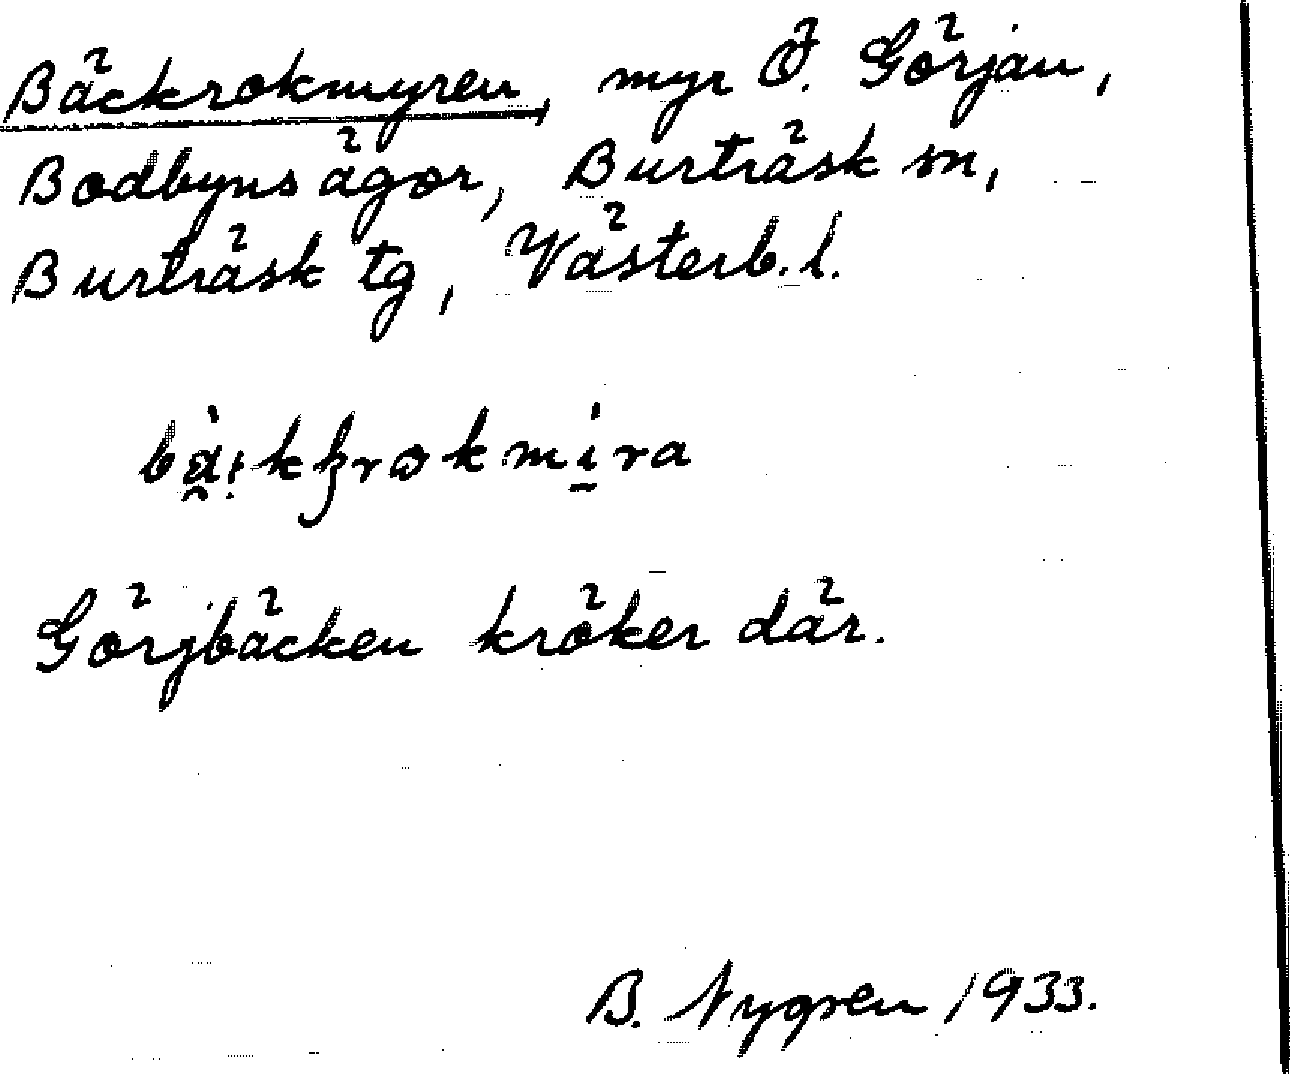 Bäckrokmyren, myr Ö. Görjån,
Bodbyns ägor, Burträsk sn,
Burträsk tg, Västerb. l.
Görjbäcken kröker där.
B. Nygren 1933.